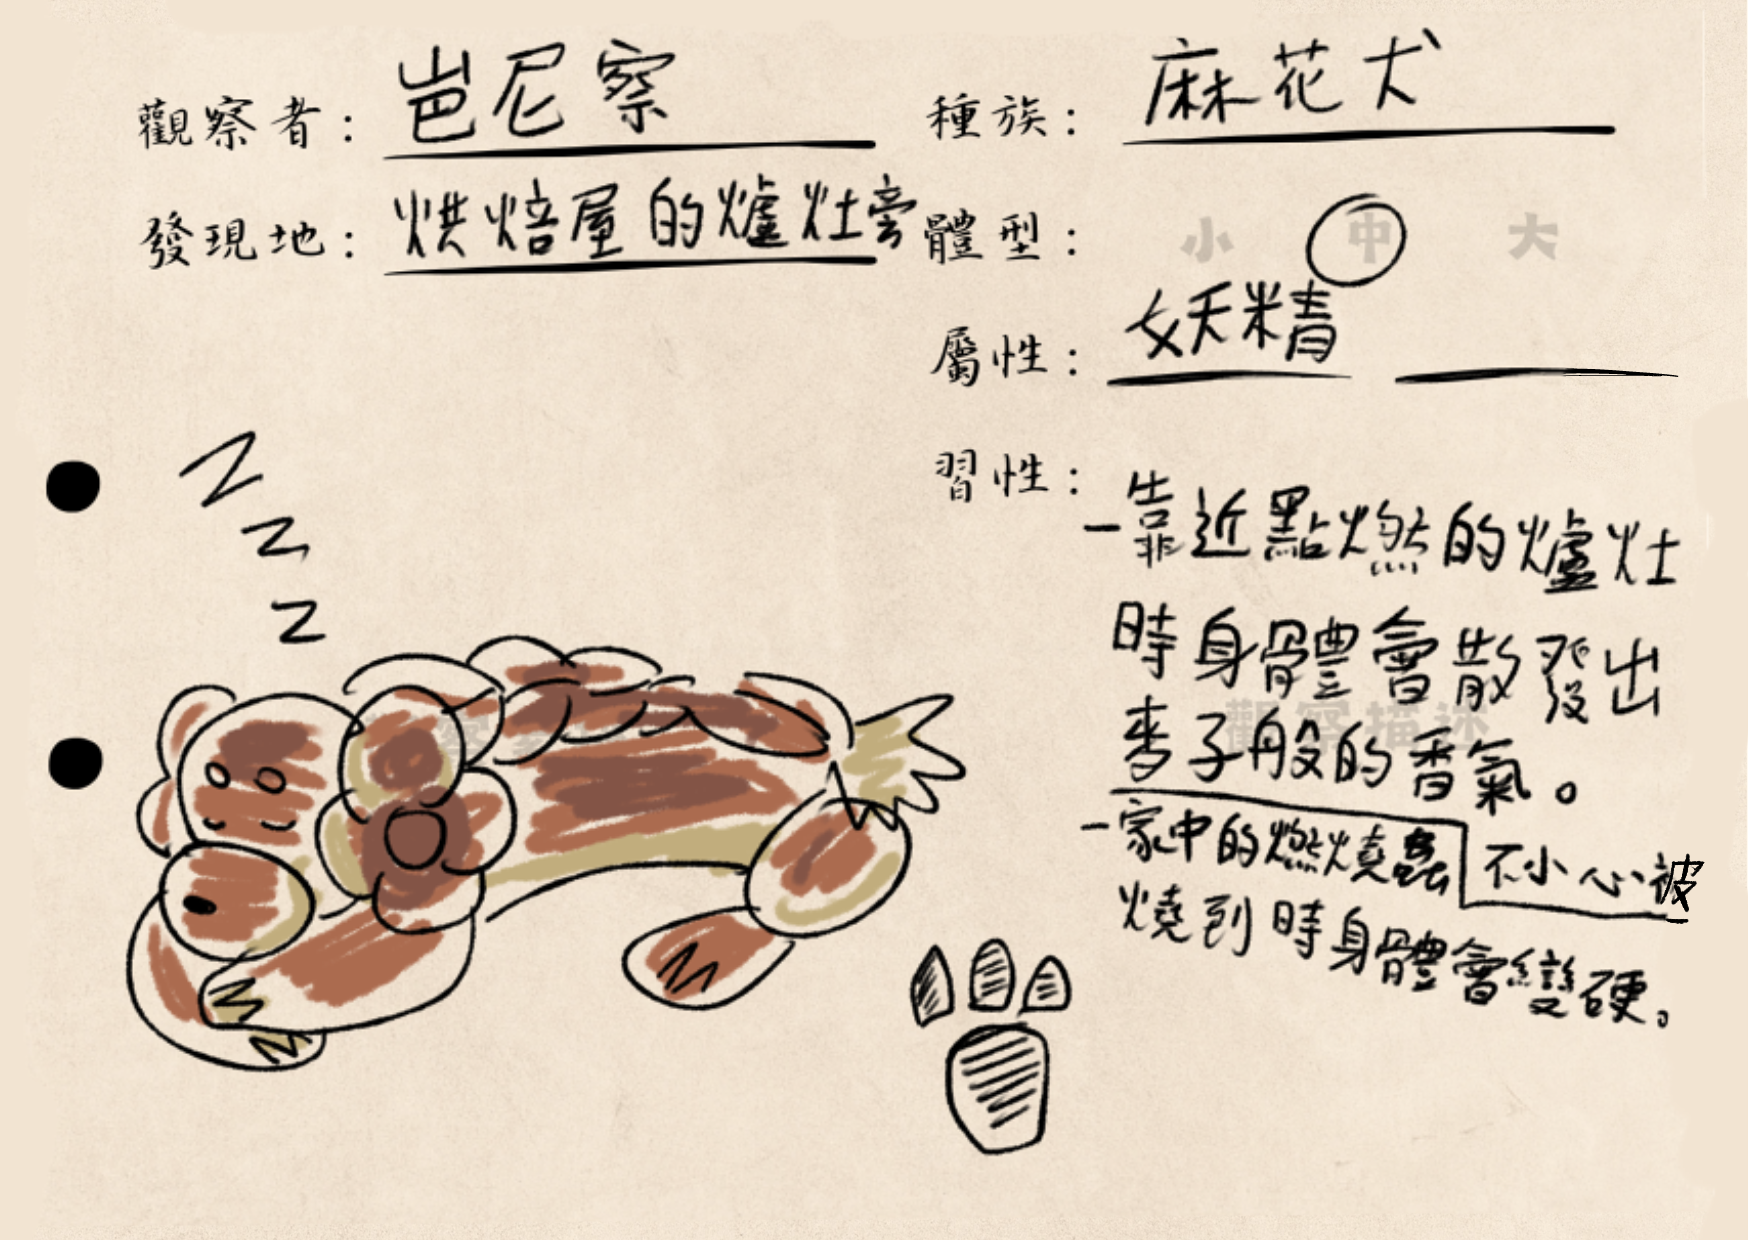 觀察者： 岜尼察
種族： 麻花犬
發現地： 烘焙屋的爐灶旁
體型： 小 中 大
屬性： 妖精
習性：
Z
Z
Z
-靠近點燃的爐灶
時身體會散發出
麥子般的香氣。
觀察描述
-家中的燃燒蟲 不小心被
燒到時身體會變硬。